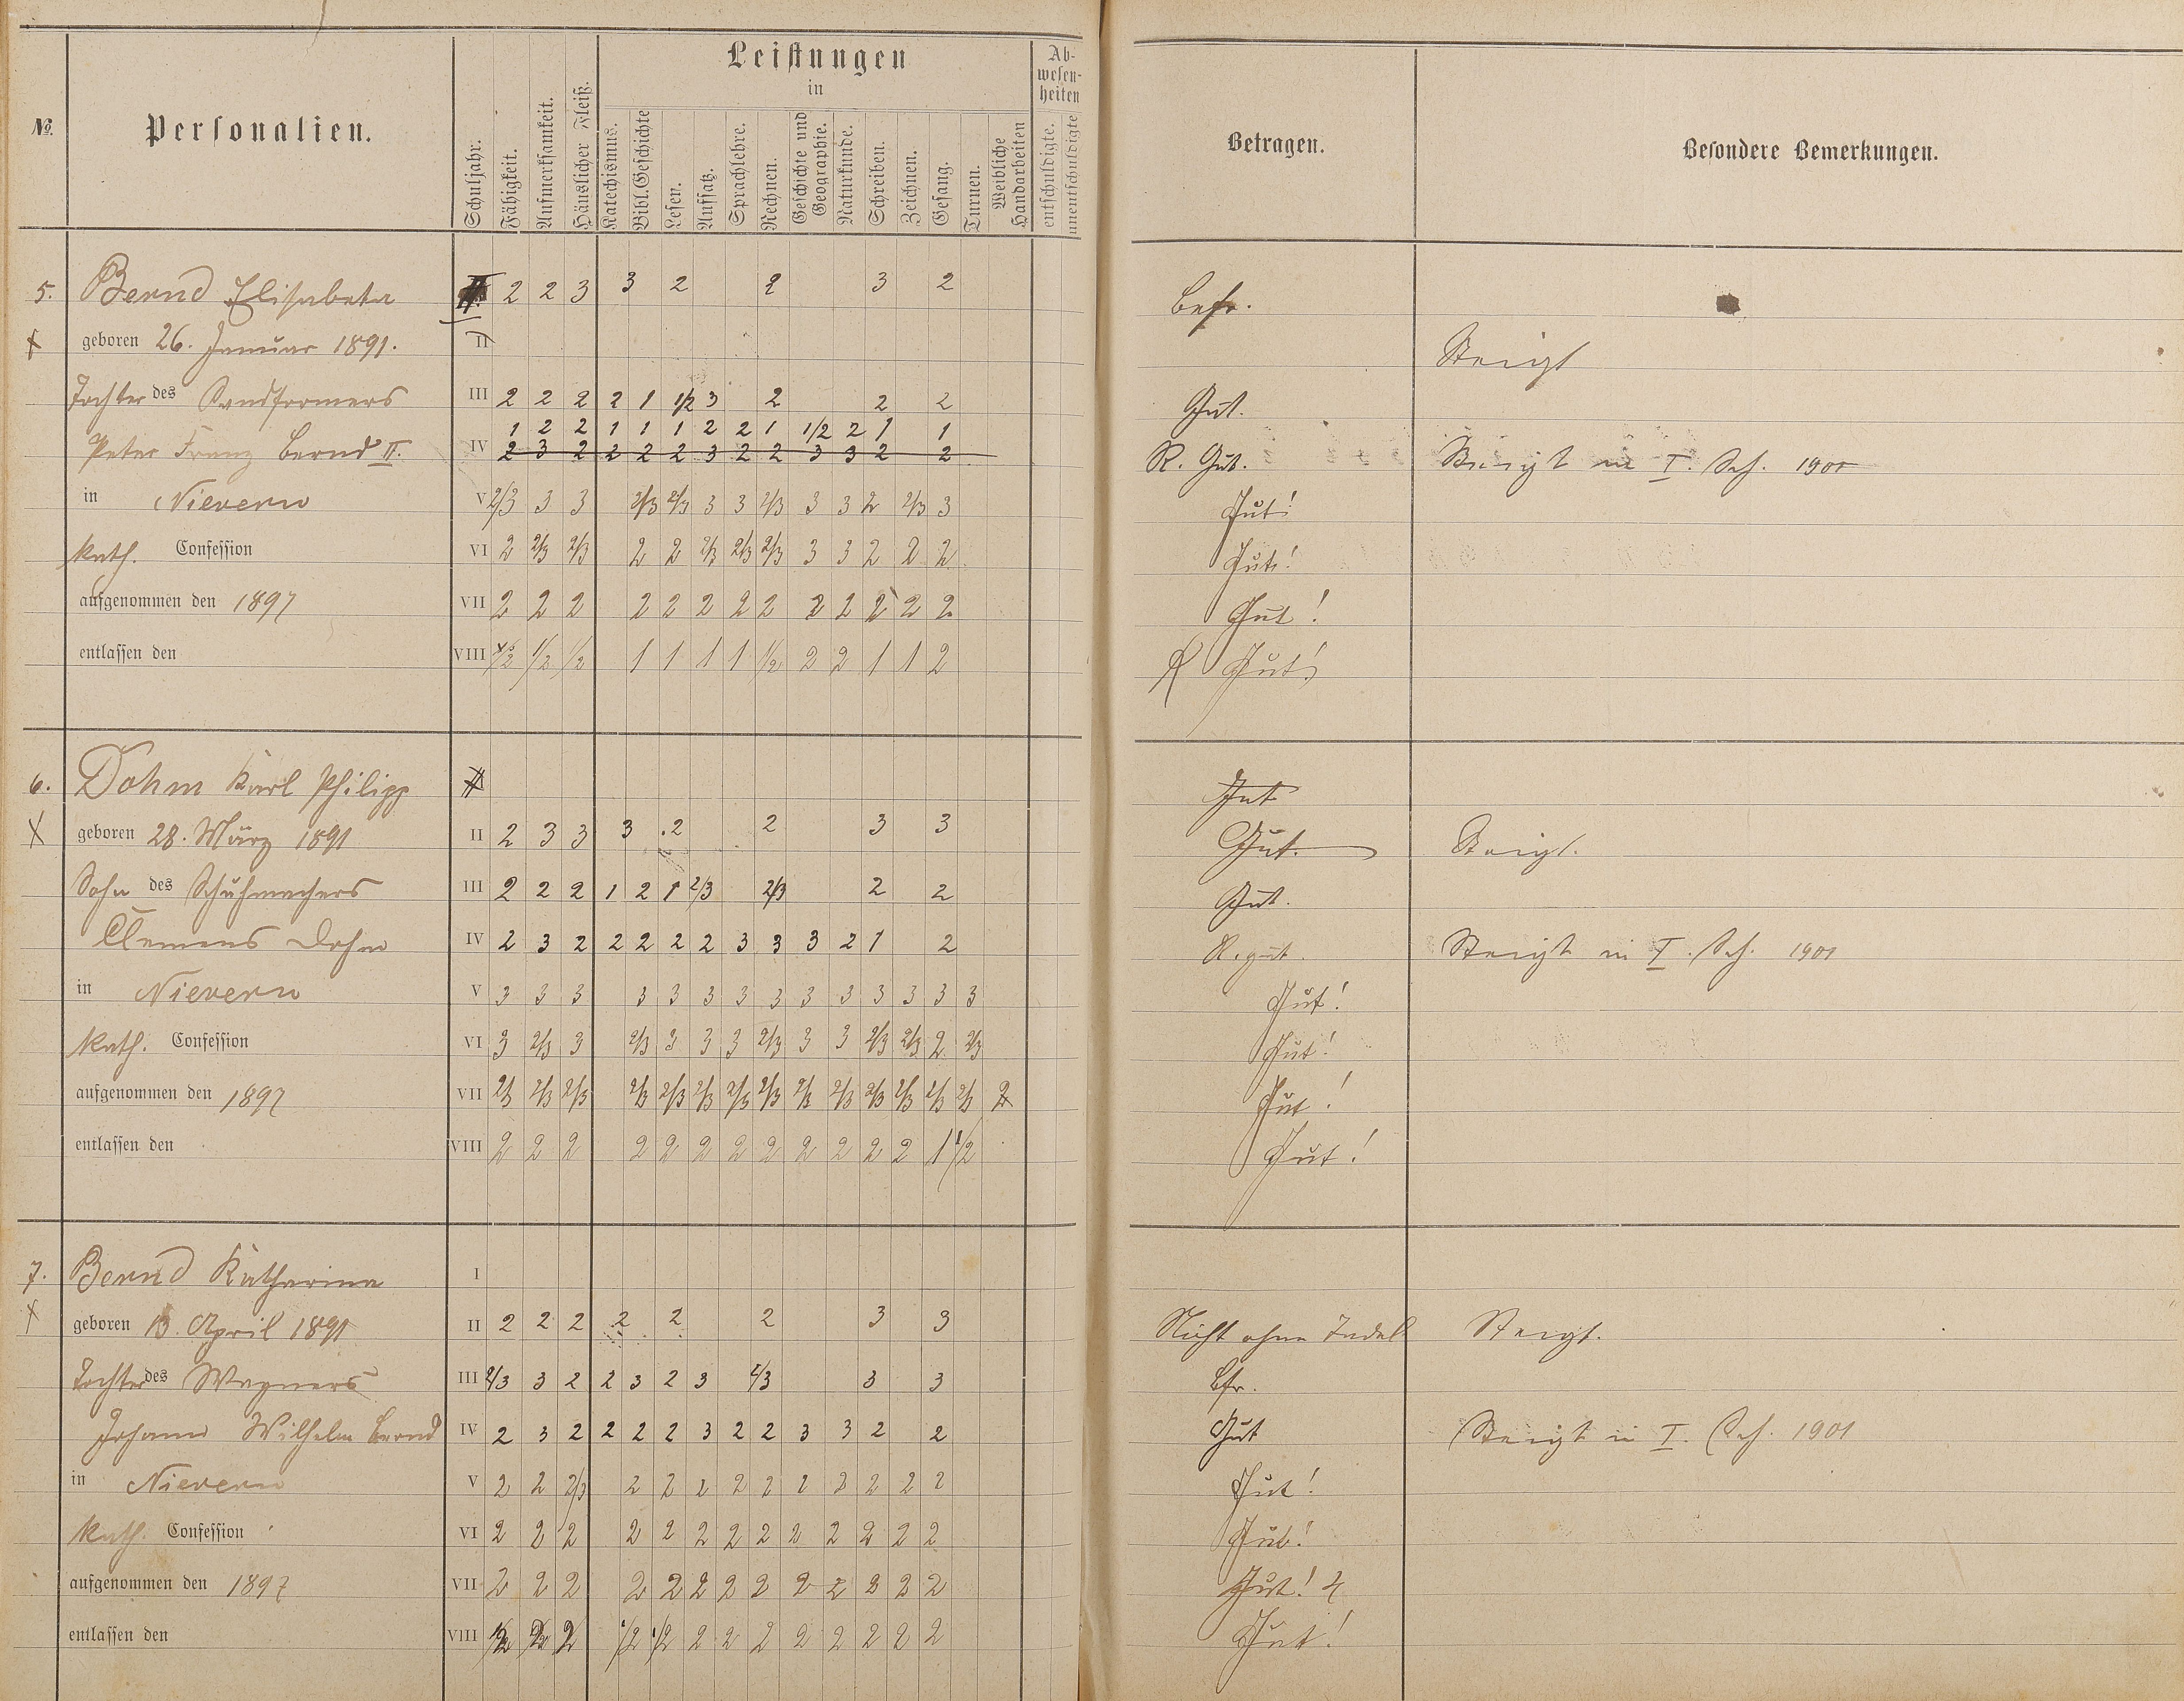 Leistungen
in
Ab-
wesen-
heiten
№.
Personalien.
Schuljahr.
Fähigkeit.
Aufmerksamkeit.
Häuslicher Fleiß.
Katechismus.
Bibl. Geschichte
Lesen.
Aufsatz.
Sprachlehre.
Rechnen.
Geschichte und
Geographie.
Naturkunde.
Schreiben.
Zeichnen.
Gesang.
Turnen.
Weibliche
Handarbeiten
entschuldigte.
unentschuldigte
Betragen.
Besondere Bemerkungen.
5. Bernd Elisabeta 2 2 3 3 2 2 3 2 befr.
geboren 26. Januar 1891. II Steigt
Tochter des Sandformers III 2 2 2 2 1 1/2 3 2 2 2 Gut.
1 2 2 1 1 1 2 2 1 1/2 2 1 1
Peter Franz Bernd II. IV 2 3 2 2 2 2 3 2 2 3 3 2 2 R. Gut. Steigt in I. Sch. 1901
in Nievern V 2/3 3 3 2/3 2/3 3 3 2/3 3 3 2 2/3 3 Gut!
kath. Confession VI 2 2/3 2/3 2 2 2/3 2/3 2/3 3 3 2 2 2 Gut!
aufgenommen den 1897 VII 2 2 2 2 2 2 2 2 2 2 2 2 2 Gut!
entlassen den VIII 1/2 1/2 1/2 1 1 1 1 1/2 2 2 1 1 2 Gut!
6. Dohm Karl Philipp Gut
geboren 28. März 1891 II 2 3 3 3 2 2 3 3 Gut. Steigt.
Sohn des Schuhmachers III 2 2 2 1 2 1 2/3 2/3 2 2 Gut.
Clemens Dohm IV 2 3 2 2 2 2 2 3 3 3 2 1 2 R. gut. Steigt in I. Sch. 1901
in Nievern V 3 3 3 3 3 3 3 3 3 3 3 3 3 3 Gut!
kath. Confession VI 3 2/3 3 2/3 3 3 3 2/3 3 3 2/3 2/3 2 2/3 Gut!
aufgenommen den 1897 VII 2/3 2/3 2/3 2/3 2/3 2/3 2/3 2/3 2/3 2/3 2/3 2/3 2/3 2/3 2 Gut!
entlassen den VIII 2 2 2 2 2 2 2 2 2 2 2 2 1 1/2 Gut!
7. Bernd Katharina I
geboren 13. April 1891 II 2 2 2 2 2 2 3 3 Nicht ohne Tadel Steigt.
Tochter des Wagners III 2/3 3 2 2 3 2 3 2/3 3 3 bfr.
Johann Wilhelm Bernd IV 2 3 2 2 2 2 3 2 2 3 3 2 2 Gut Steigt in I. Sch. 1901
in Nievern V 2 2 2/3 2 2 2 2 2 2 2 2 2 2 Gut!
kath. Confession VI 2 2 2 2 2 2 2 2 2 2 2 2 2 Gut!
aufgenommen den 1897 VII 2 2 2 2 2 2 2 2 2 2 2 2 2 Gut!
entlassen den VIII 2 1/2 1/2 2 2 2 2 2 2 2 2 Gut!